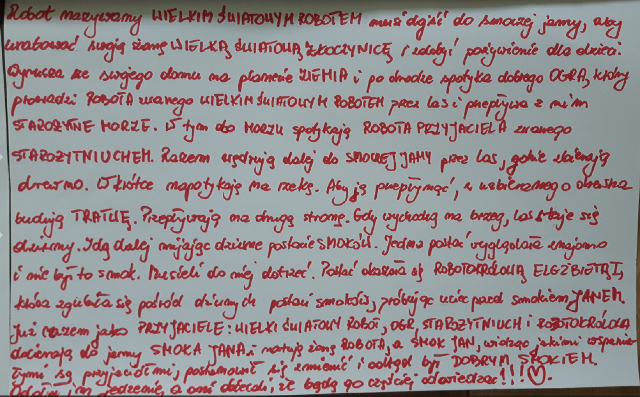 Robot nazywany WIELKIM ŚWIATOWYM ROBOTEM musi dojść do smoczej jamy, aby
uratować swoją żonę WIELKĄ ŚWIATOWĄ ZŁOCZYNICĘ i zdobyć pożywienie dla dzieci.
Wyrusza ze swojego domu na planecie ZIEMIA i po drodze spotyka dobrego OGRA, który
prowadzi ROBOTA zwanego WIELKIM ŚWIATOWYM ROBOTEM przez las i przepływa z nim
STAROŻYTNE MORZE. W tym do MORZU spotykają ROBOTA PRZYJACIELA zwanego
STAROŻYTNIUCHEM. Razem wędrują dalej do SMOCZEJ JAMY przez las, gdzie zbierają
drewno. Wkrótce napotykają na rzekę. Aby ją przepłynąć, z uzbieranego drewna
budują TRATWĘ. Przepływają na drugą stronę. Gdy wychodzą na brzeg, las staje się
dziwny. Idą dalej mijając dziwne postacie SMOKÓW. Jedna postać wyglądała znajomo
i nie był to smok. Musieli do niej dotrzeć. Postać okazała się ROBOTOKRÓLOWĄ ELŻBIETĄ I,
która zgubiła się pośród dziwnych postaci smoków, próbując uciec przed smokiem JANEM.
Już razem jako PRZYJACIELE: WIELKI ŚWIATOWY ROBOT, OGR, STAROŻYTNIUCH i ROBOTOKRÓLOWA
docierają do jamy SMOKA JANA i ratują żonę ROBOTA, a SMOK JAN, widząc jakimi wspania-
łymi są przyjaciółmi, postanowił się zmienić i odtąd był DOBRYM SMOKIEM.
im jedzenie, a oni obiecali, że będą go częściej odwiedzać!!!♡.